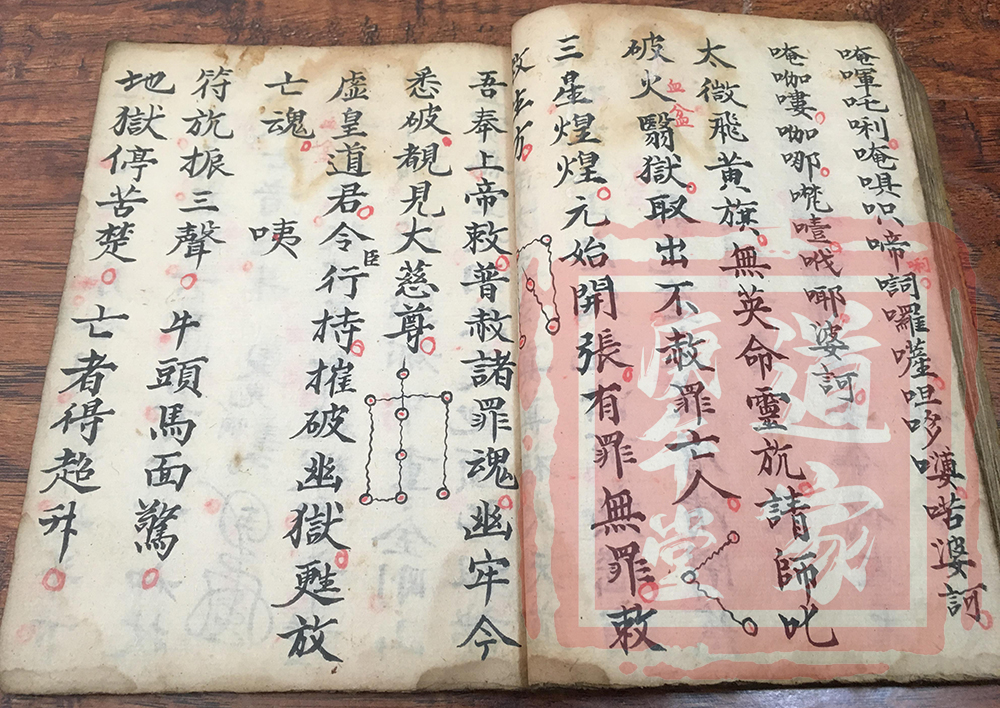 唵吒唎。唵啼訶囉薩呾哆吽婆訶
唵咖嘍咖哪噎哦哪婆訶
太微飛黃旗。無英命靈。請師叱
血盆
破火翳獄。取出不赦罪亡人。
三星煌煌。元始開張。有罪無罪。敕
吾奉上帝敕。普赦諸罪魂。幽牢今
悉破。覩見大慈尊。
虛皇道君。令臣行持。摧破幽獄。甦放
亡魂。咦
符振三聲。牛頭馬面驚。
地獄停苦楚。亡者得超升。
道家
堂